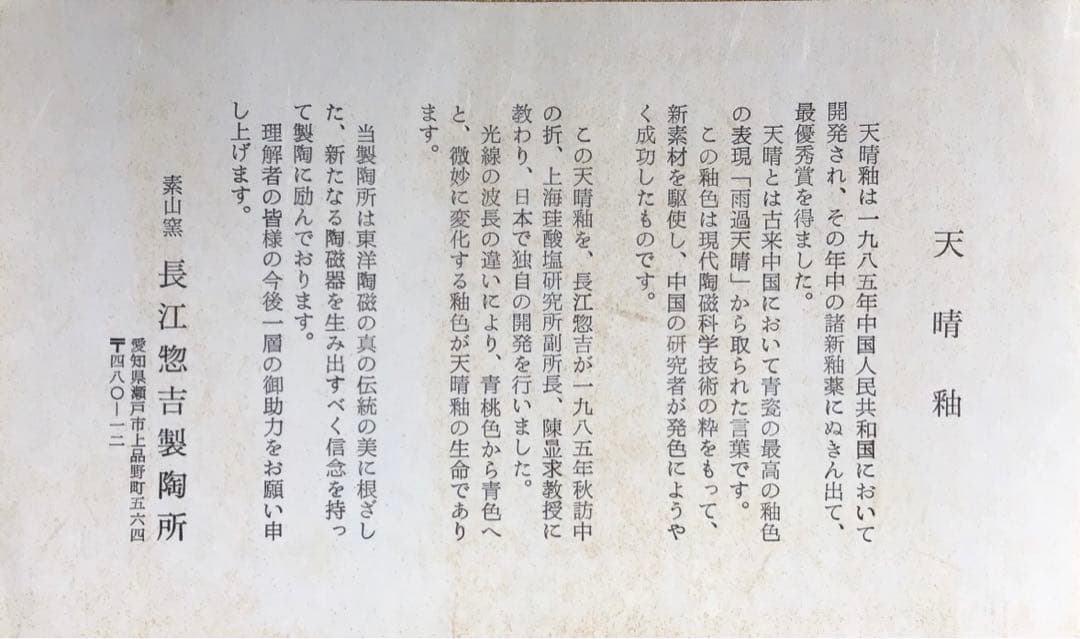 天晴釉
天晴釉は一九八五年中国人民共和国において
開発され、その年中の諸新釉薬にぬきん出て、
最優秀賞を得ました。
天晴とは古来中国において青瓷の最高の釉色
の表現「雨過天晴」から取られた言葉です。
この釉色は現代陶磁科学技術の粋をもって、
新素材を駆使し、中国の研究者が発色にようや
く成功したものです。
この天晴釉を、長江惣吉が一九八五年秋訪中
の折、上海珪酸塩研究所副所長、陳显求教授に
教わり、日本で独自の開発を行いました。
光線の波長の違いにより、青桃色から青色へ
と、微妙に変化する釉色が天晴釉の生命であり
ます。
当製陶所は東洋陶磁の真の伝統の美に根ざし
た、新たなる陶磁器を生み出すべく信念を持っ
て製陶に励んでおります。
理解者の皆様の今後一層の御助力をお願い申
し上げます。
素山窯 長江惣吉製陶所
愛知県瀬戸市上品野町五六四
〒四八〇ー一二